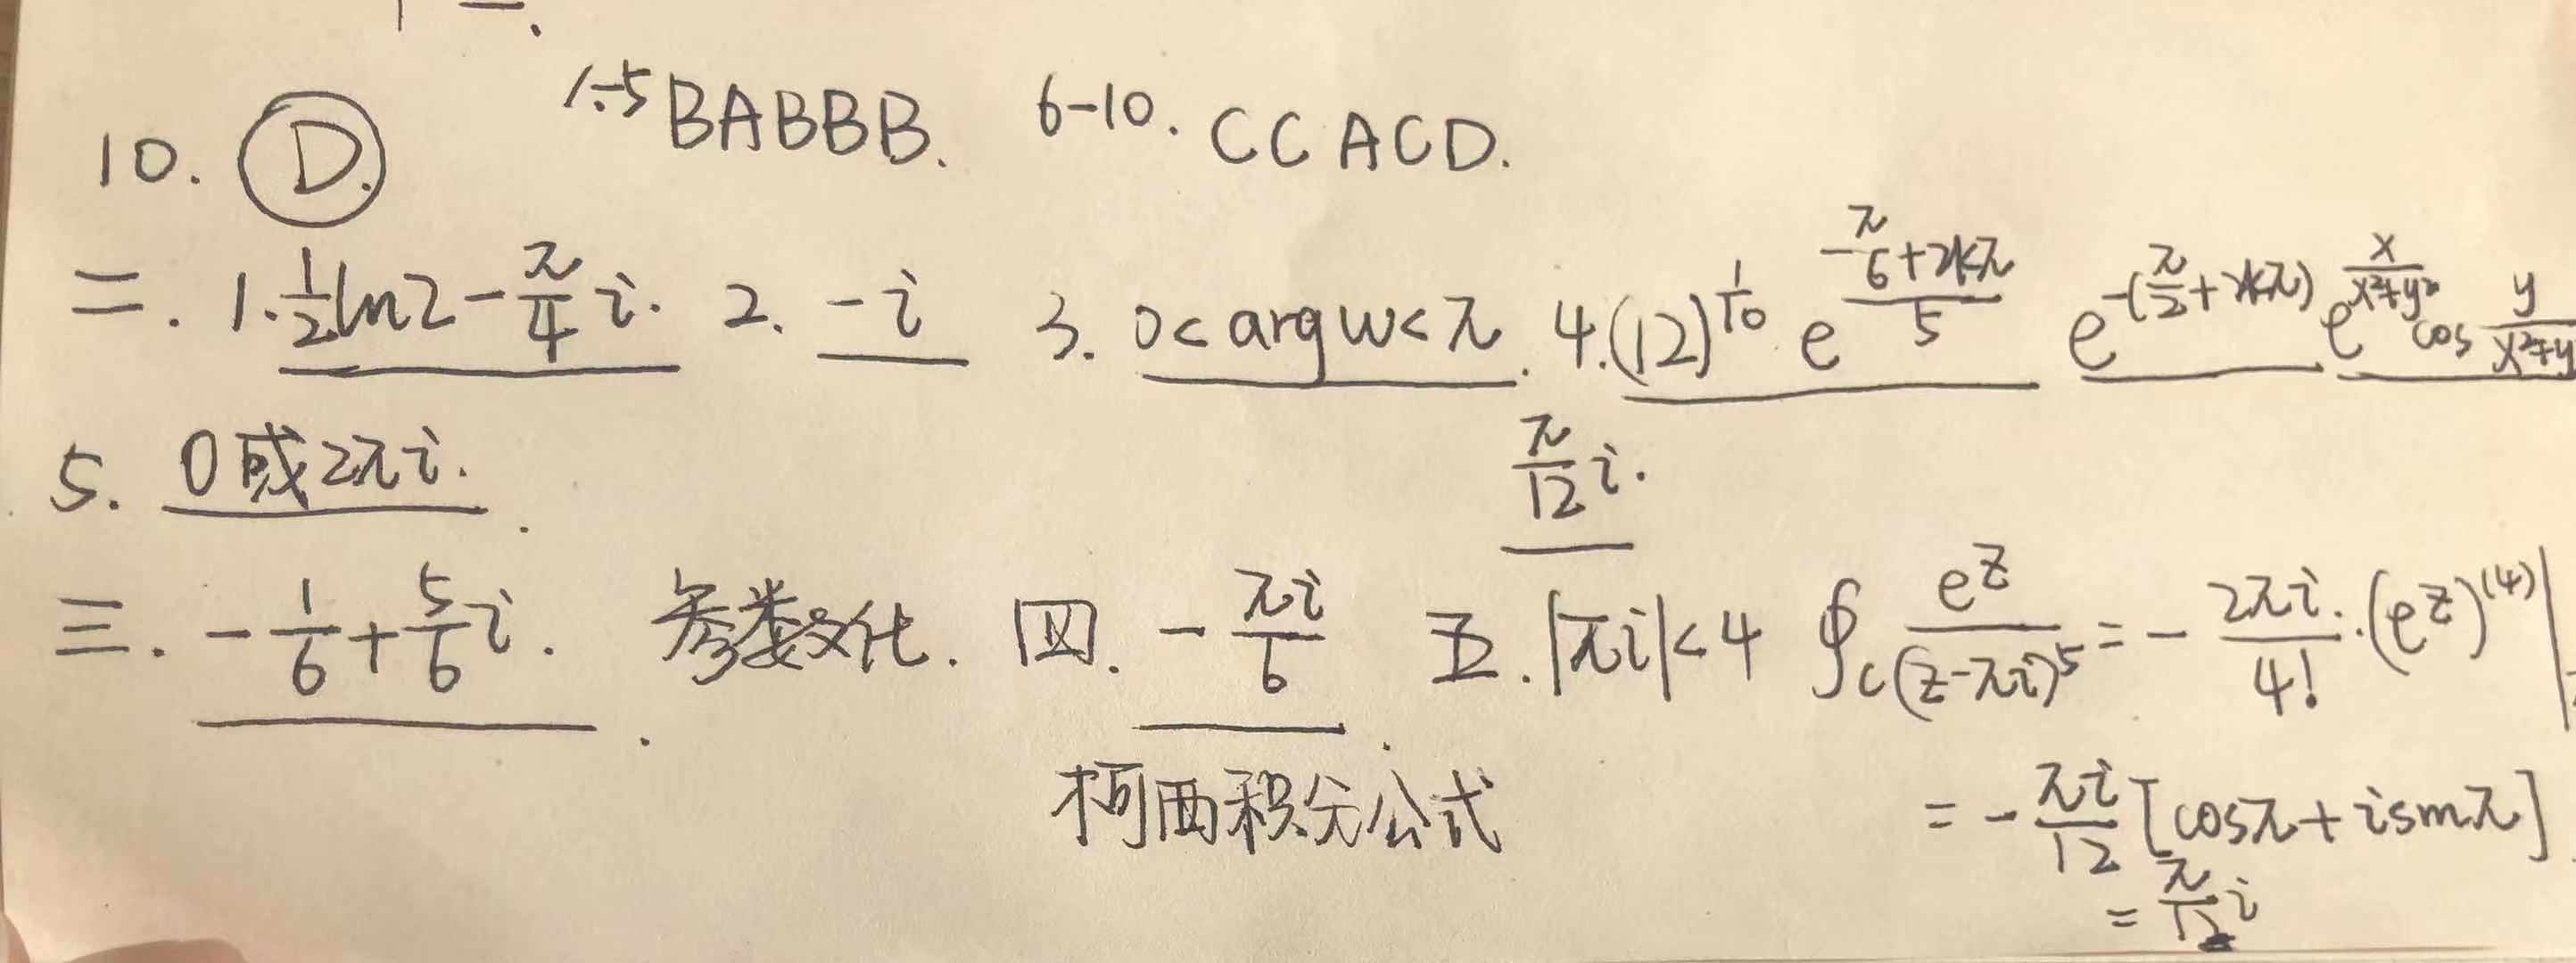 1-5 BABBB. 6-10. CCACD.
10. D.
二. 1. 1/2 ln2 - π/4 i. 2. -i 3. 0< arg w< π. 4. (12)^(1/10) e^((-π/6+2kπ)/5) e^(-(π/2+2kπ)) e^(x/(x²+y²)) cos y/(x²+y
5. 0或2πi.
π/12 i.
三. -1/6 + 5/6 i. 参数化. 四. -πi/6 五. |πi|<4 ∮_C e^z/(z-πi)^5 = - 2πi/4! · (e^z)^(4)|
柯西积分公式
= - πi/12 [cosπ + isinπ]
= π/12 i